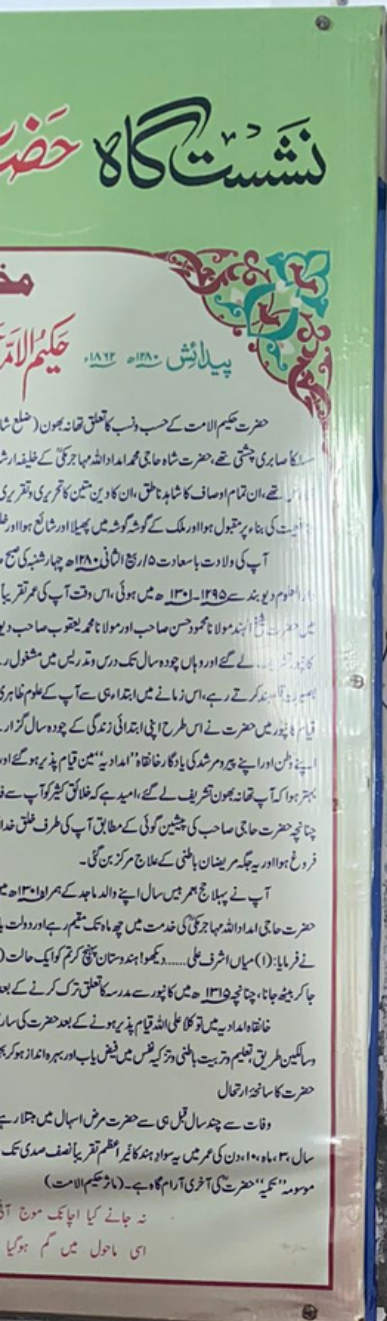 نشست گاہ حضر
مخ
حکیم الامت
پیدائش ۱۲۸۰ھ ۱۸۶۲ء
حضرت حکیم الامت کے حسب ونسب کا تعلق تھانہ بھون (ضلع شا
مسلکاً صابری چشتی تھے، حضرت شاہ حاجی محمد امداد اللہ مہاجر مکیؒ کے خلیفہ ارشد
تھے، ان تمام اوصاف کا شاہد ناطق، ان کا دین متین کا تحریری وتقریری
کی بناء پر مقبول ہوا اور ملک کے گوشہ گوشہ میں پھیلا اور شائع ہوا اور
آپ کی ولادت باسعادت ۵/ربیع الثانی ۱۲۸۰ھ چہارشنبہ کی صبح
دارالعلوم دیوبند سے ۱۲۹۵۔۱۳۰۱ھ میں ہوئی، اس وقت آپ کی عمر تقریباً
میں حضرت شیخ الہند مولانا محمود حسن صاحب اور مولانا محمد یعقوب صاحب دیو
کانپور تشریف لے گئے اور وہاں چودہ سال تک درس وتدریس میں مشغول ر
کرتے رہے، اس زمانے میں ابتداء ہی سے آپ کے علوم ظاہری
قیام کانپور میں حضرت نے اس طرح اپنی ابتدائی زندگی کے چودہ سال گزار
اپنے وطن اور اپنے پیرومرشد کی یادگار خانقاہ ”امدادیہ“ میں قیام پذیر ہو گئے اور
بہتر ہوا کہ آپ تھانہ بھون تشریف لے گئے، امید ہے کہ خلائق کثیر کو آپ سے
چنانچہ حضرت حاجی صاحب کی پیشین گوئی کے مطابق آپ کی طرف خلق خدا
فروغ ہوا اور یہ جگہ مریضان باطنی کے علاج مرکز بن گئی۔
آپ نے پہلا حج بعمر بیس سال اپنے والد ماجد کے ہمراہ ۱۳۰۱ھ میں
حضرت حاجی امداد اللہ مہاجر مکیؒ کی خدمت میں چھ ماہ تک مقیم رہے اور دولت
نے فرمایا: (۱) میاں اشرف علی......دیکھو! ہندوستان پہنچ کر تم کو ایک حالت (
جا کر بیٹھ جانا، چنانچہ ۱۳۱۵ھ میں کانپور سے مدرسہ کا تعلق ترک کرنے کے بعد
خانقاہ امدادیہ میں توکلا علی اللہ قیام پذیر ہونے کے بعد حضرت کی ساری
وسالکین طریق، تعلیم وتربیت باطنی وتزکیہ نفس میں فیض یاب اور بہرہ انداز ہو کر
حضرت کا سانحۂ ارتحال
وفات سے چند سال قبل ہی سے حضرت مرض اسہال میں مبتلا رہے
سال ۳، ماہ ۱۰، دن کی عمر میں یہ سواد ہند کا نیر اعظم تقریباً نصف صدی تک
موسومہ ”تکیہ“ حضرتؒ کی آخری آرام گاہ ہے۔ (ماثر حکیم الامت)
نہ جانے کیا اچانک موج آئی
اسی ماحول میں گم ہوگیا